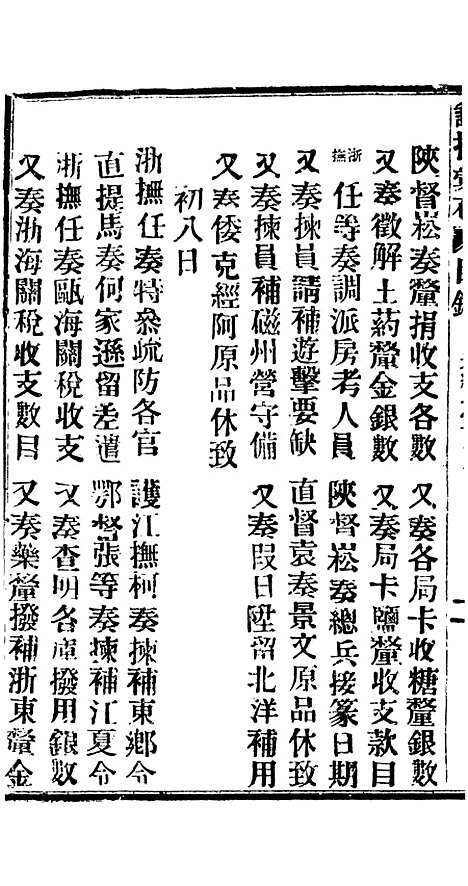 陝督崧奏釐捐收支各數　又奏各局卡收糖釐銀數
又奏徵解土药釐金銀數　又奏局卡鹽釐收支款目
浙撫任等奏調派房考人員　陝督崧奏總兵接篆日期
又奏揀員請補遊擊要缺　直督袁奏景文原品休致
又奏揀員補磁州營守備　又奏叚日陞留北洋補用
又奏倭克經阿原品休致
初八日
浙撫任奏特叅疏防各官　護江撫柯奏揀補東鄉令
直提馬奏何家遜留差遣　鄂督張等奏揀補江夏令
浙撫任奏甌海關稅收支　又奏查明各庫撥用銀數
又奏浙海關稅收支數目　又奏藥釐撥補浙東釐金